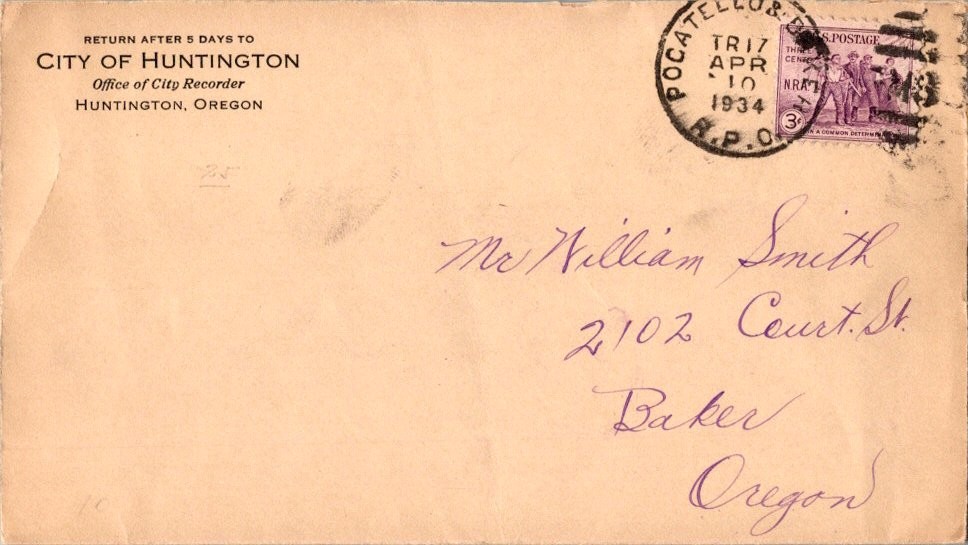 RETURN AFTER 5 DAYS TO
CITY OF HUNTINGTON
Office of City Recorder
HUNTINGTON, OREGON
POCATELLO & BAKER
TR 17
APR
10
1934
R.P.O.
U.S. POSTAGE
THREE
CENTS
N.R.A.
3¢
IN A COMMON DETERM
Mr William Smith
2102 Court. St.
Baker
Oregon